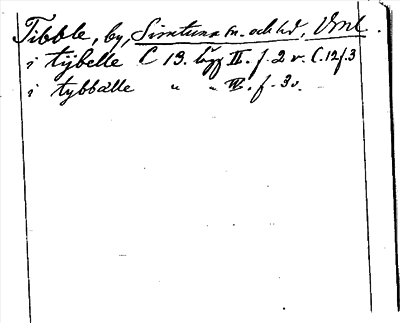 Tibble, by, Simtuna sn. och hd, Vml.
i tÿbelle C 19. lägg II. f. 2 v. C.12f.3
i tybbälle " " IV. f. 3v.